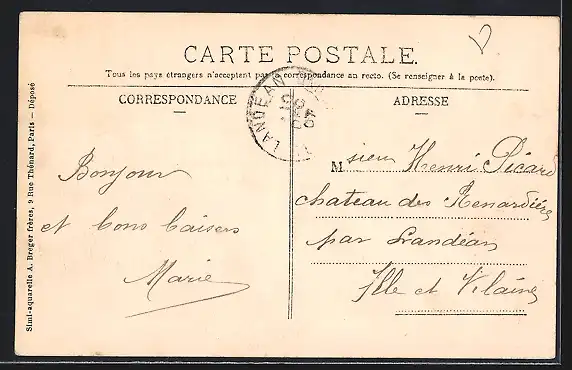 CARTE POSTALE.
Tous les pays étrangers n'acceptent pas la correspondance au recto. (Se renseigner à la poste).
CORRESPONDANCE
ADRESSE
LANDEAN
07
Bonjour
et bons baisers
Marie
Monsieur Henri Picard
chateau des Renardières
par Landéan
Ille et Vilaine
Simi-aquarelle A. Breger frères, 9 Rue Thénard, Paris – Déposé